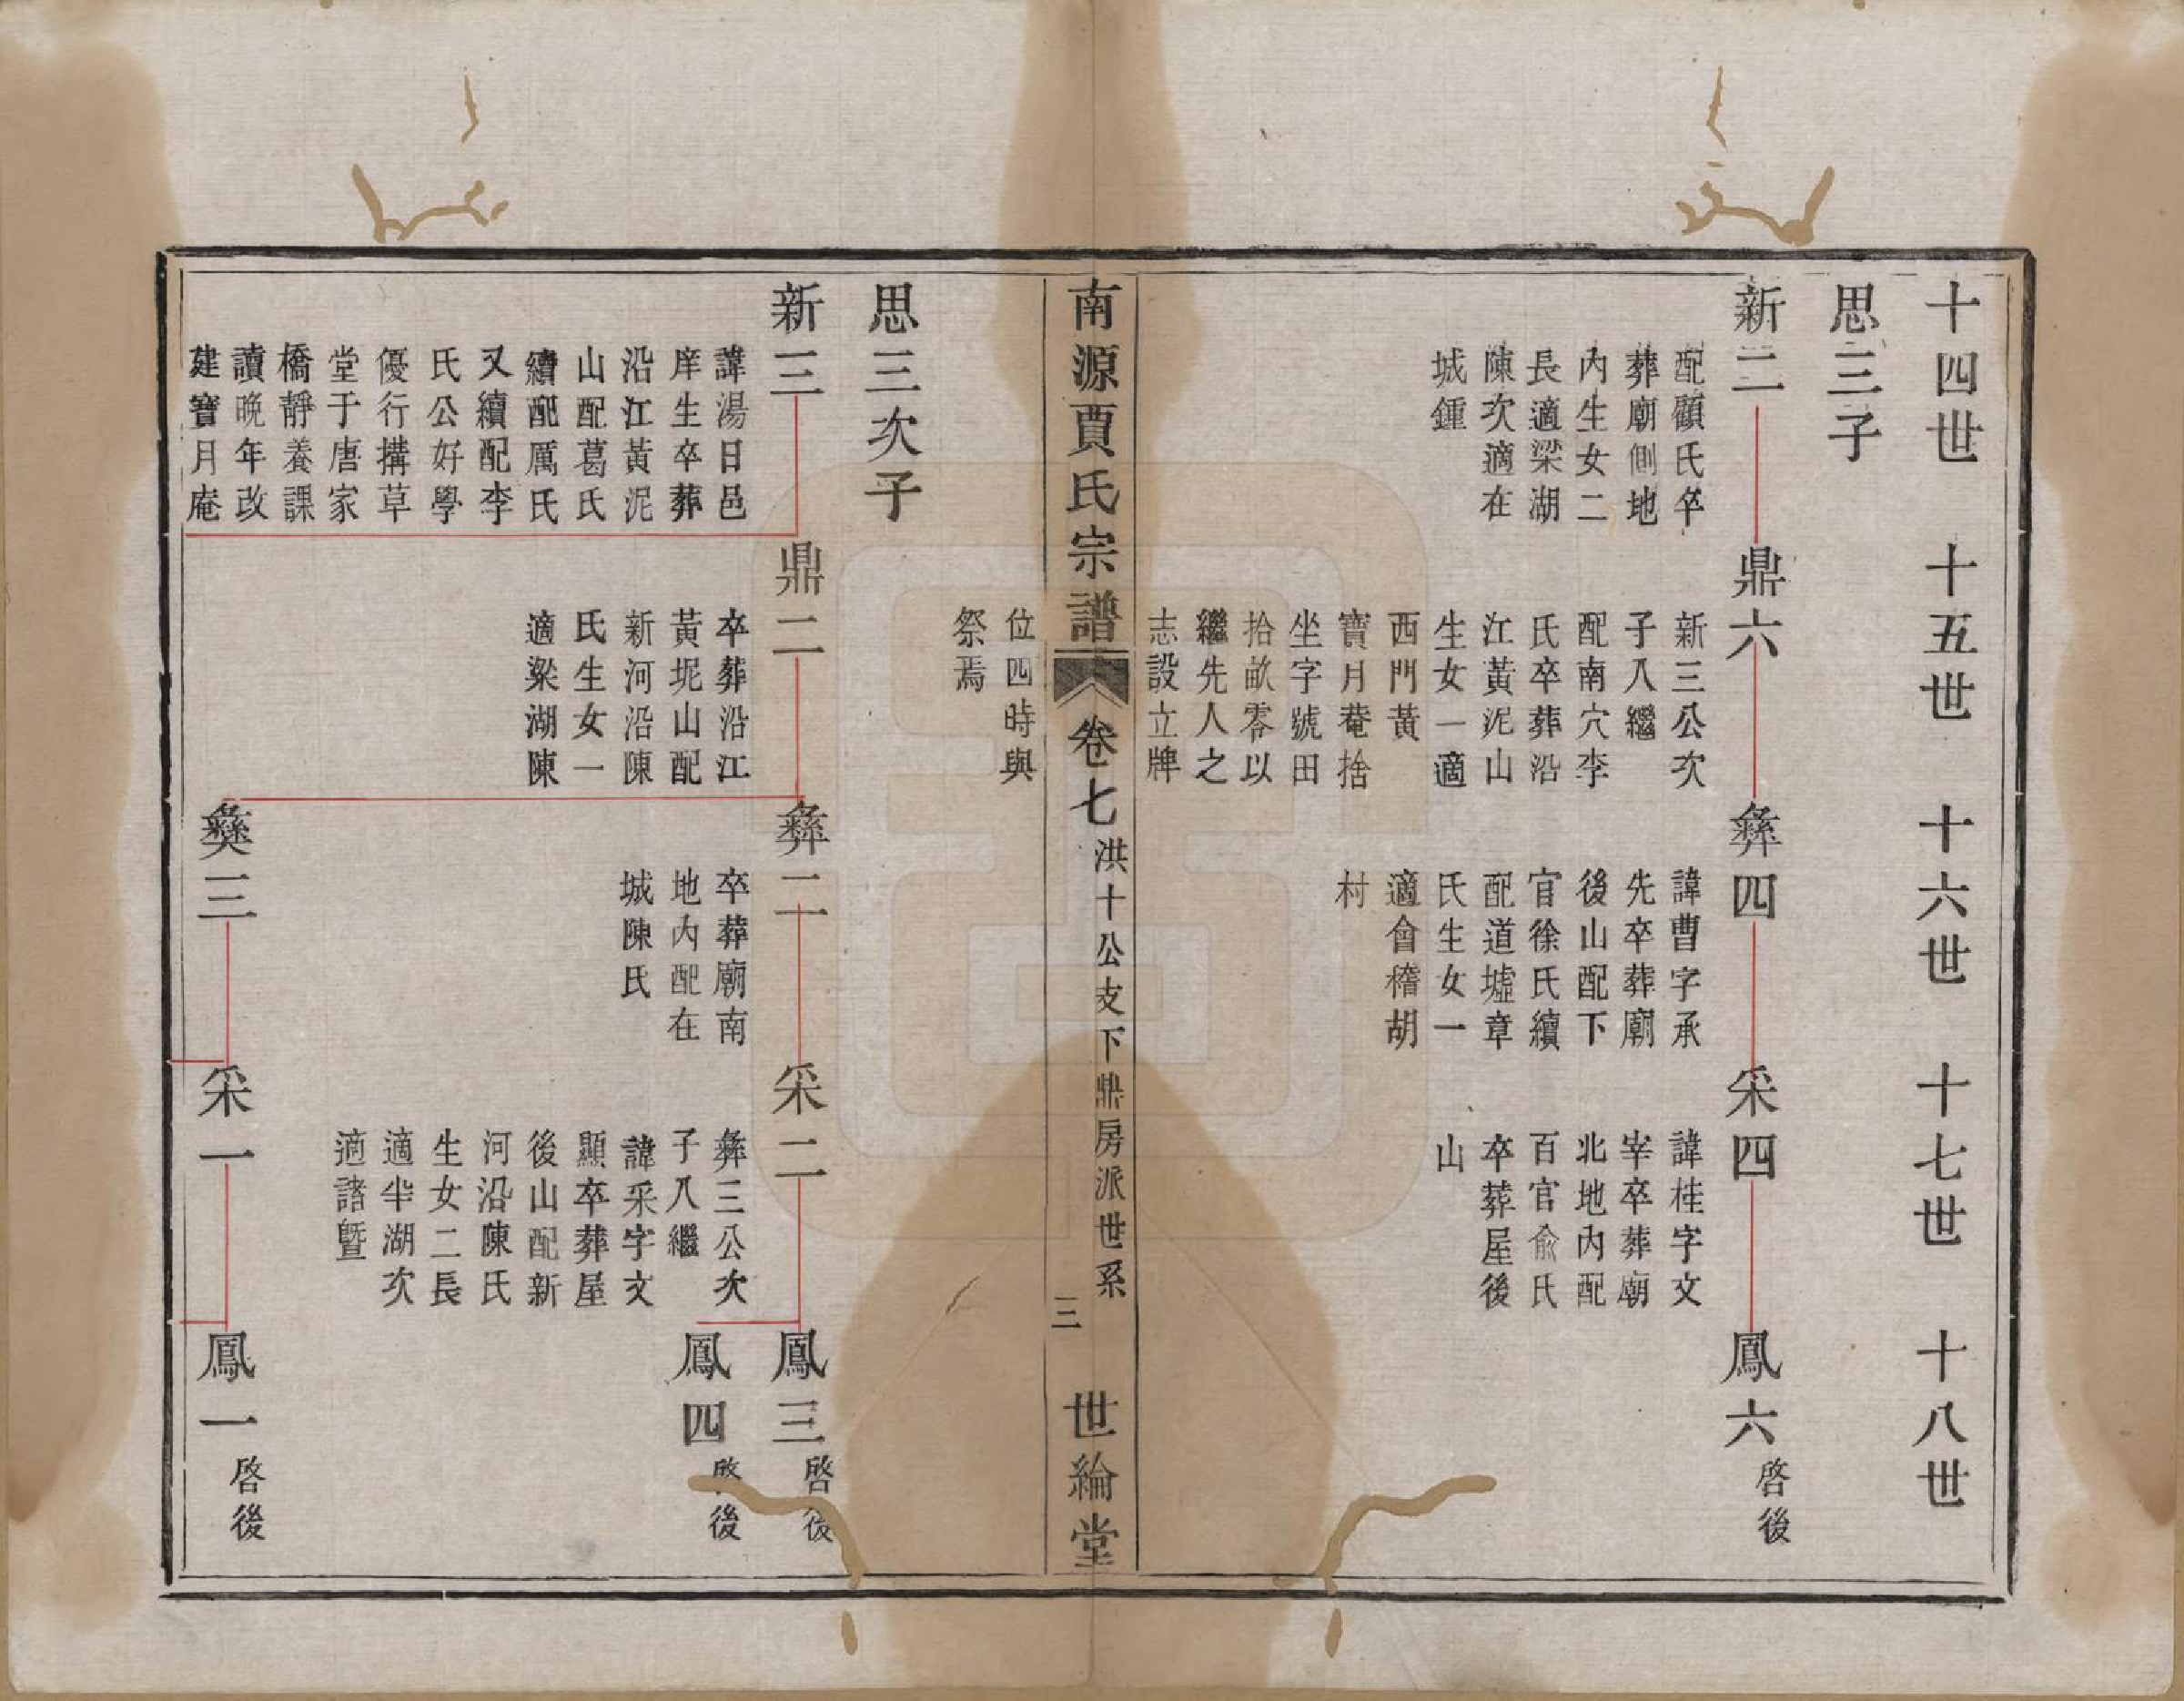 十四世
十五世
十六世
十七世
十八世
思三子
新二
配顧氏卒
葬廟側地
內生女二
長適梁湖
陳次適在
城鍾
鼎六
新三公次
子入繼
配南穴李
氏卒葬沿
江黃泥山
生女一適
西門黃
寶月菴捨
坐字號田
拾畝零以
繼先人之
志設立牌
位四時與
祭焉
彝四
諱曹字承
先卒葬廟
後山配下
官徐氏續
配道墟章
氏生女一
適會稽胡
村
采四
諱桂字文
宰卒葬廟
北地內配
百官俞氏
卒葬屋後
山
鳳六
啓後
南源賈氏宗譜
卷七
洪十公支下鼎房派世系
三
世綸堂
思三次子
新三
諱湯日邑
庠生卒葬
沿江黃泥
山配葛氏
續配厲氏
又續配李
氏公好學
優行搆草
堂于唐家
橋靜養課
讀晚年改
建寶月庵
鼎二
卒葬沿江
黃坭山配
新河沿陳
氏生女一
適梁湖陳
彝二
卒葬廟南
地內配在
城陳氏
采二
彝三公次
子入繼
諱采字文
顯卒葬屋
後山配新
河沿陳氏
生女二長
適半湖次
適諸暨
鳳三
啓後
鳳四
啓後
彝三
采一
鳳一
啓後